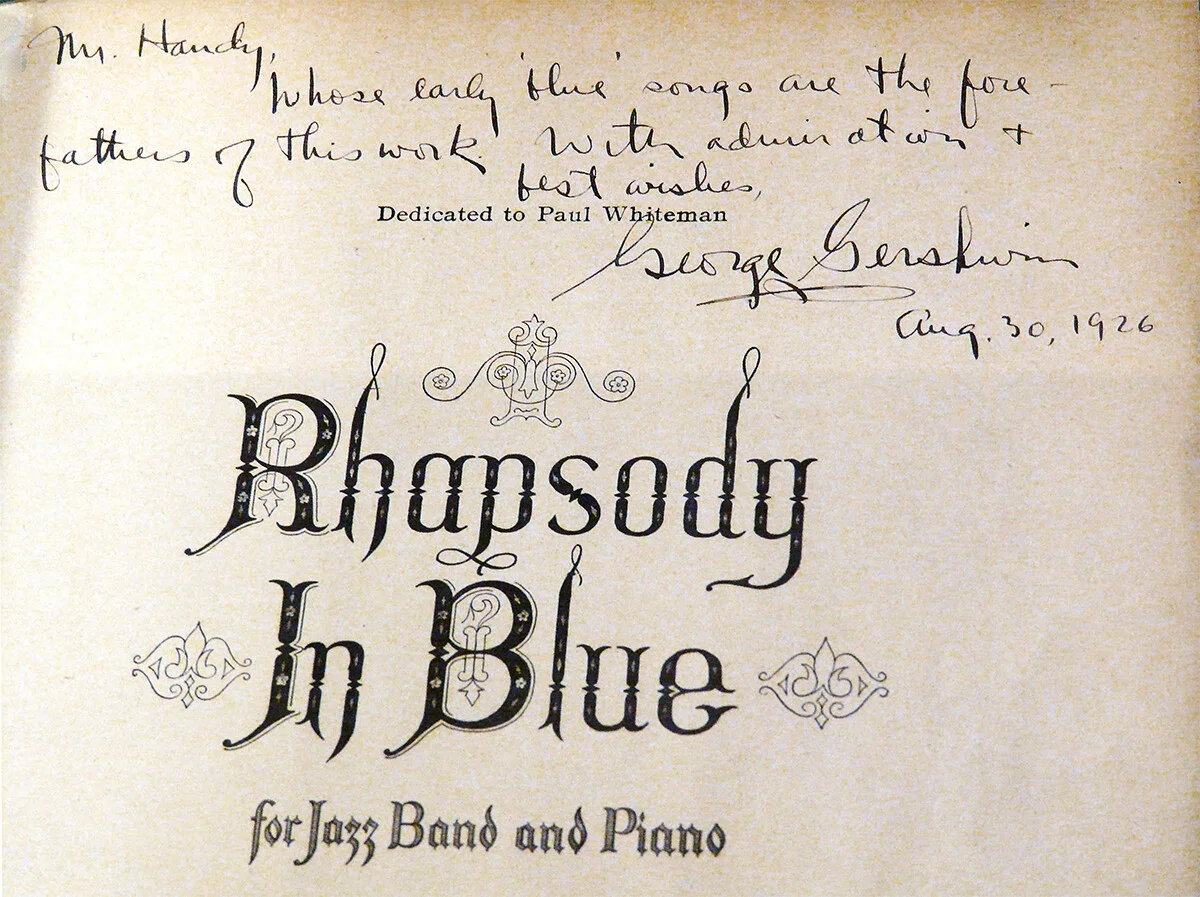 Mr. Handy,
Whose early 'blue' songs are the fore-
fathers of this work. With admiration +
best wishes,
Dedicated to Paul Whiteman
George Gershwin
Aug. 30, 1926
Rhapsody
In Blue
for Jazz Band and Piano